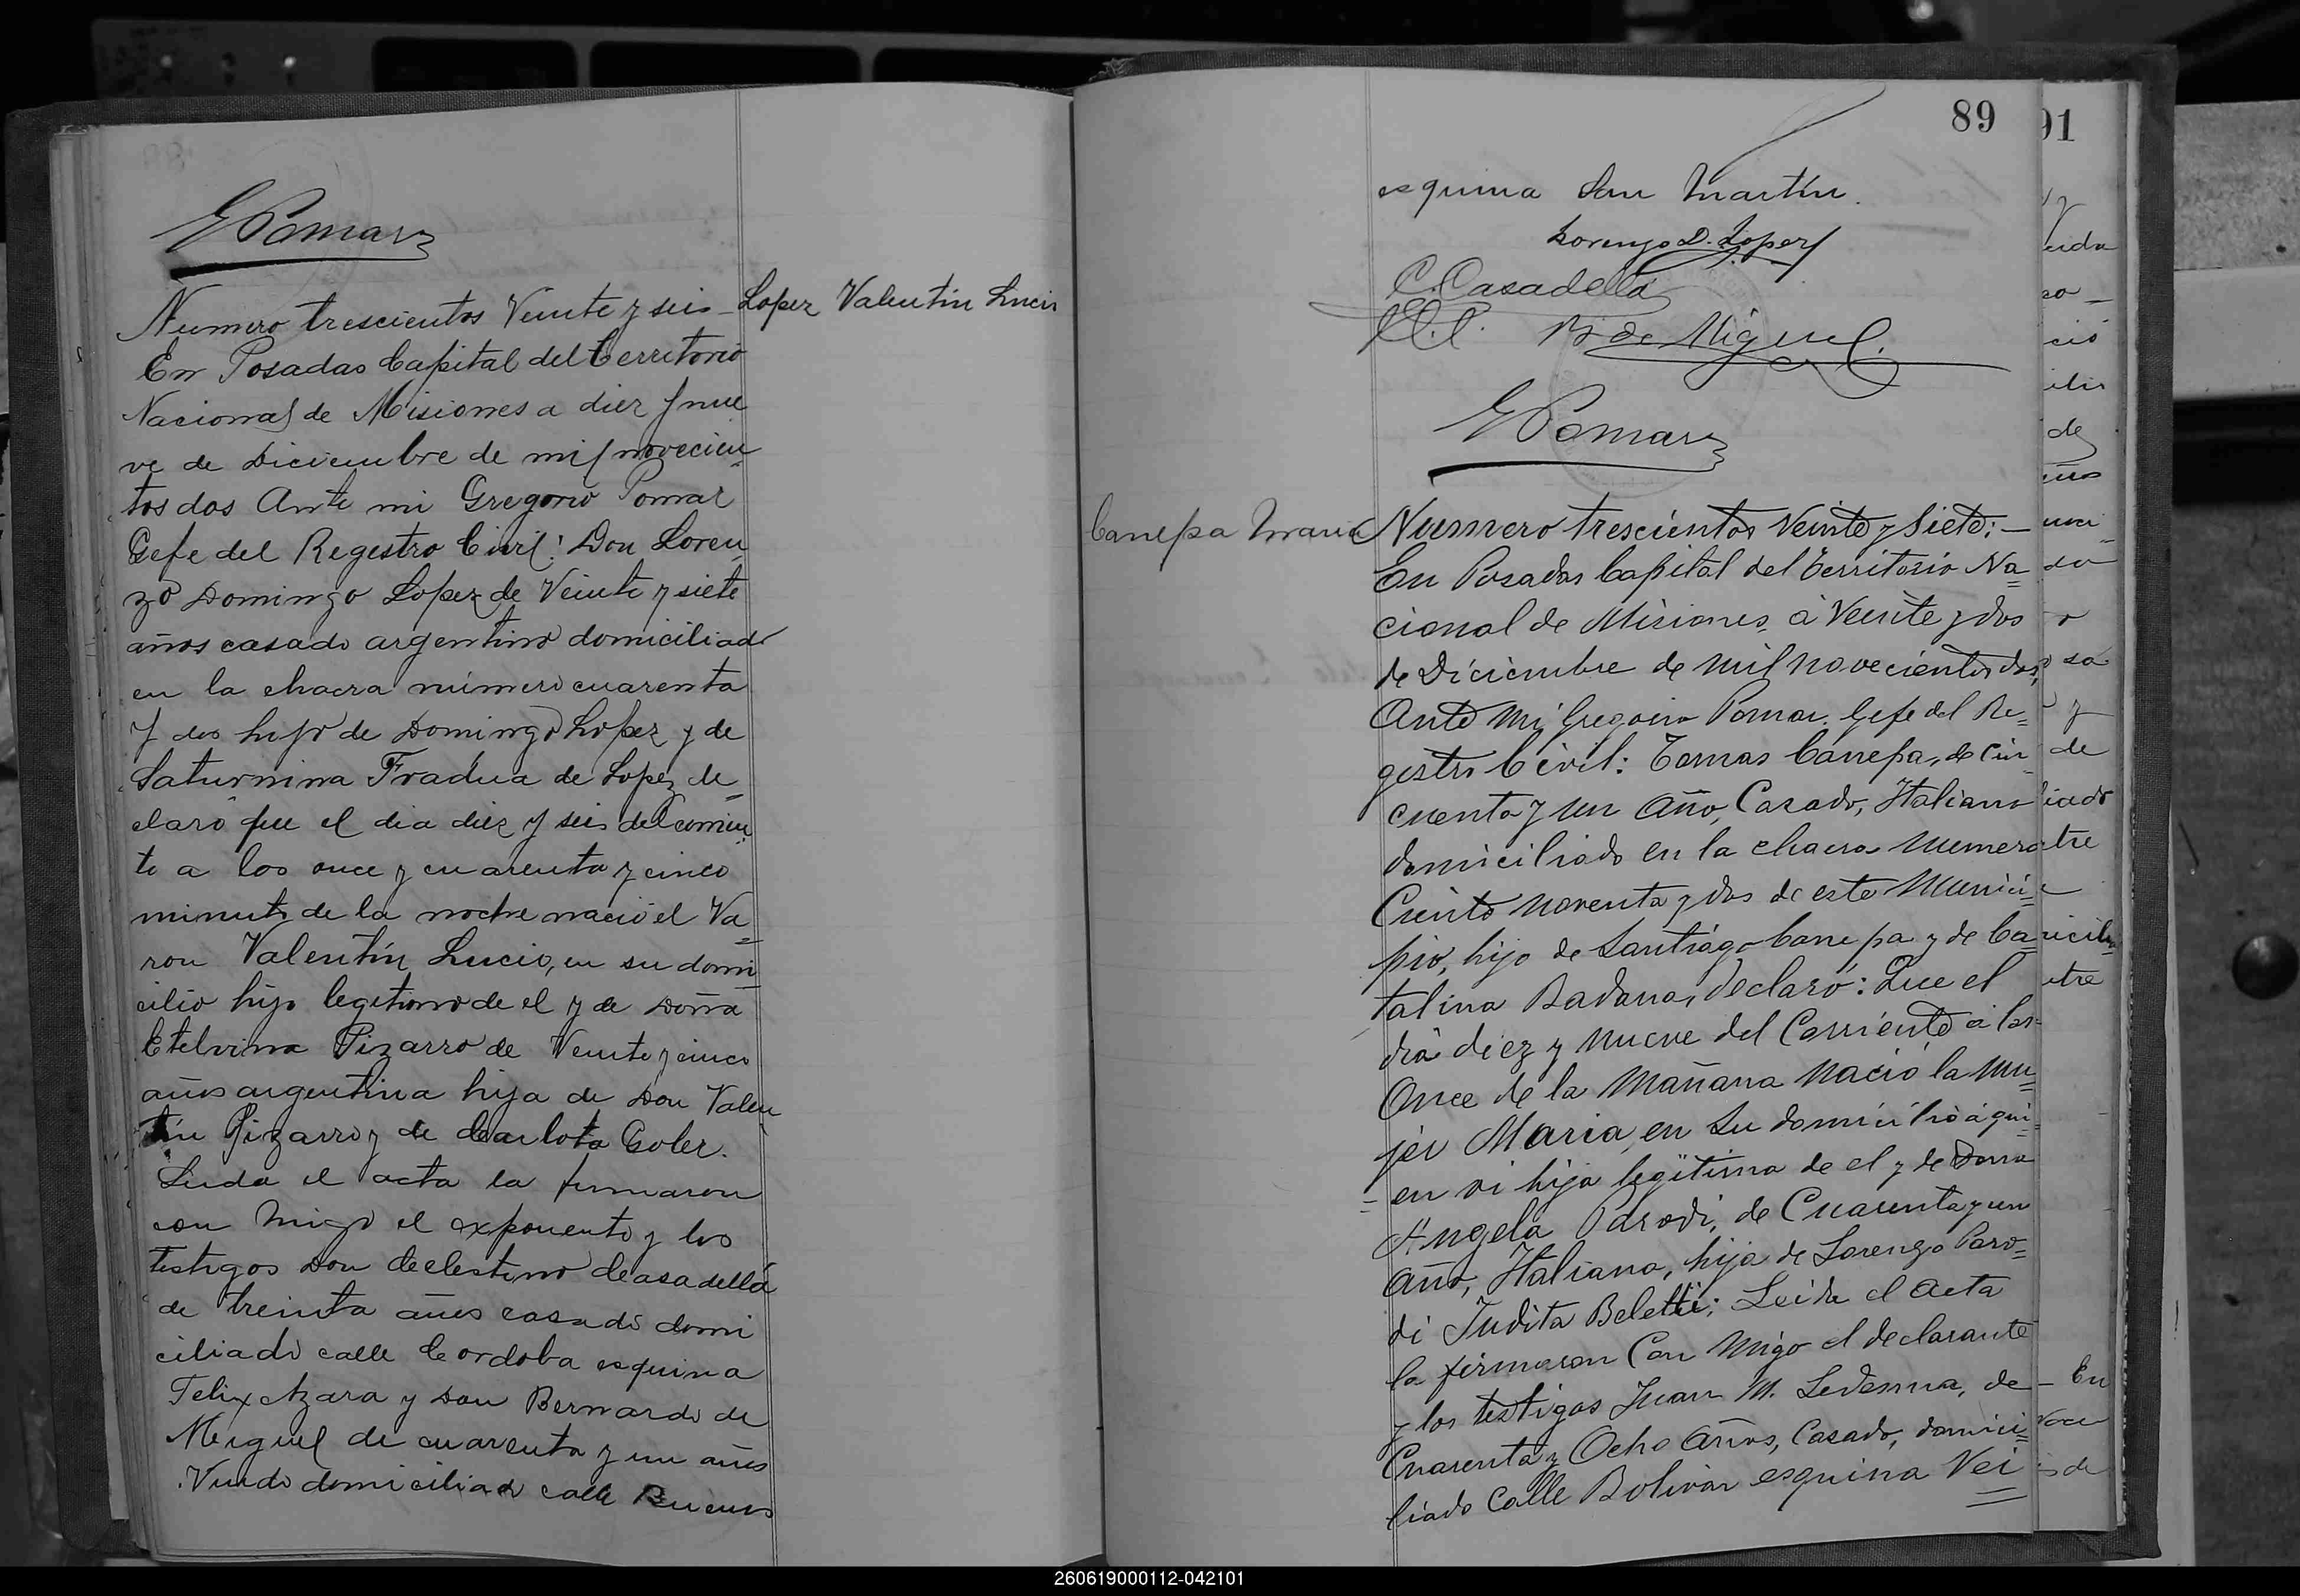 GPomar
Lopez Valentin Lucio
Numero trescientos Veinte y seis
En Posadas Capital del territorio
Nacional de Misiones a diez y nue
ve de Diciembre de mil novecien
tos dos Ante mi Gregorio Pomar
Gefe del Registro Civil: Don Loren
zo Domingo Lopez de Veinte y siete
años casado argentino domiciliado
en la chacra número cuarenta
y dos hijo de Domingo Lopez y de
Saturnina Fradua de Lopez de
claró que el dia diez y seis del corrien
te a las once y cuarenta y cinco
minutos de la noche nació el Va
ron Valentín Lucio, en su domi
cilio hijo legitimo de el y de Doña
Etelvina Pizarro de Veinte y cinco
años argentina hija de Don Valen
tin Pizarro y de Carlota Goler.
Leida el acta la firmaron
con migo el exponente y los
testigos Don Celestino Casadellá
de treinta años casado domi
ciliado calle Cordoba esquina
Felix Azara y Don Bernardo de
Miguel de cuarenta y un años
Viudo domiciliado calle Buenos
89
esquina San Martín.
Lorenzo D. Lopez
C. Casadellá
B. de Miguel
GPomar
Canepa Maria
Numero trescientos Veinte y Siete:—
En Posadas Capital del Territorio Na=
cional de Misiones, á Veinte y dos
de Diciembre de mil novecientos dos,
Ante mi, Gregorio Pomar, Gefe del Re=
gistro Civil: Tomas Canepa, de Cin
cuenta y un Año, Casado, Italiano
domiciliado en la chacra numero
Ciento noventa y dos de este Munici=
pio, hijo de Santiago Canepa y de Ca=
talina Badana, declaró: Que el
dia diez y nueve del Corriente á las
Once de la Mañana Nació la Mu=
jer Maria, en Su domicilio á qui=
=en vi hija legitima de el y de Doña
Angela Parodi, de Cuarenta y un
Año, Italiana, hija de Lorenzo Paro=
di Judita Beletti; Leida el Acta
la firmaron Con Migo el declarante
y los testigos Juan M. Ledesma, de
Cuarenta y Ocho Años, Casado, domici=
liado Calle Bolivar esquina Vei
91
260619000112-042101